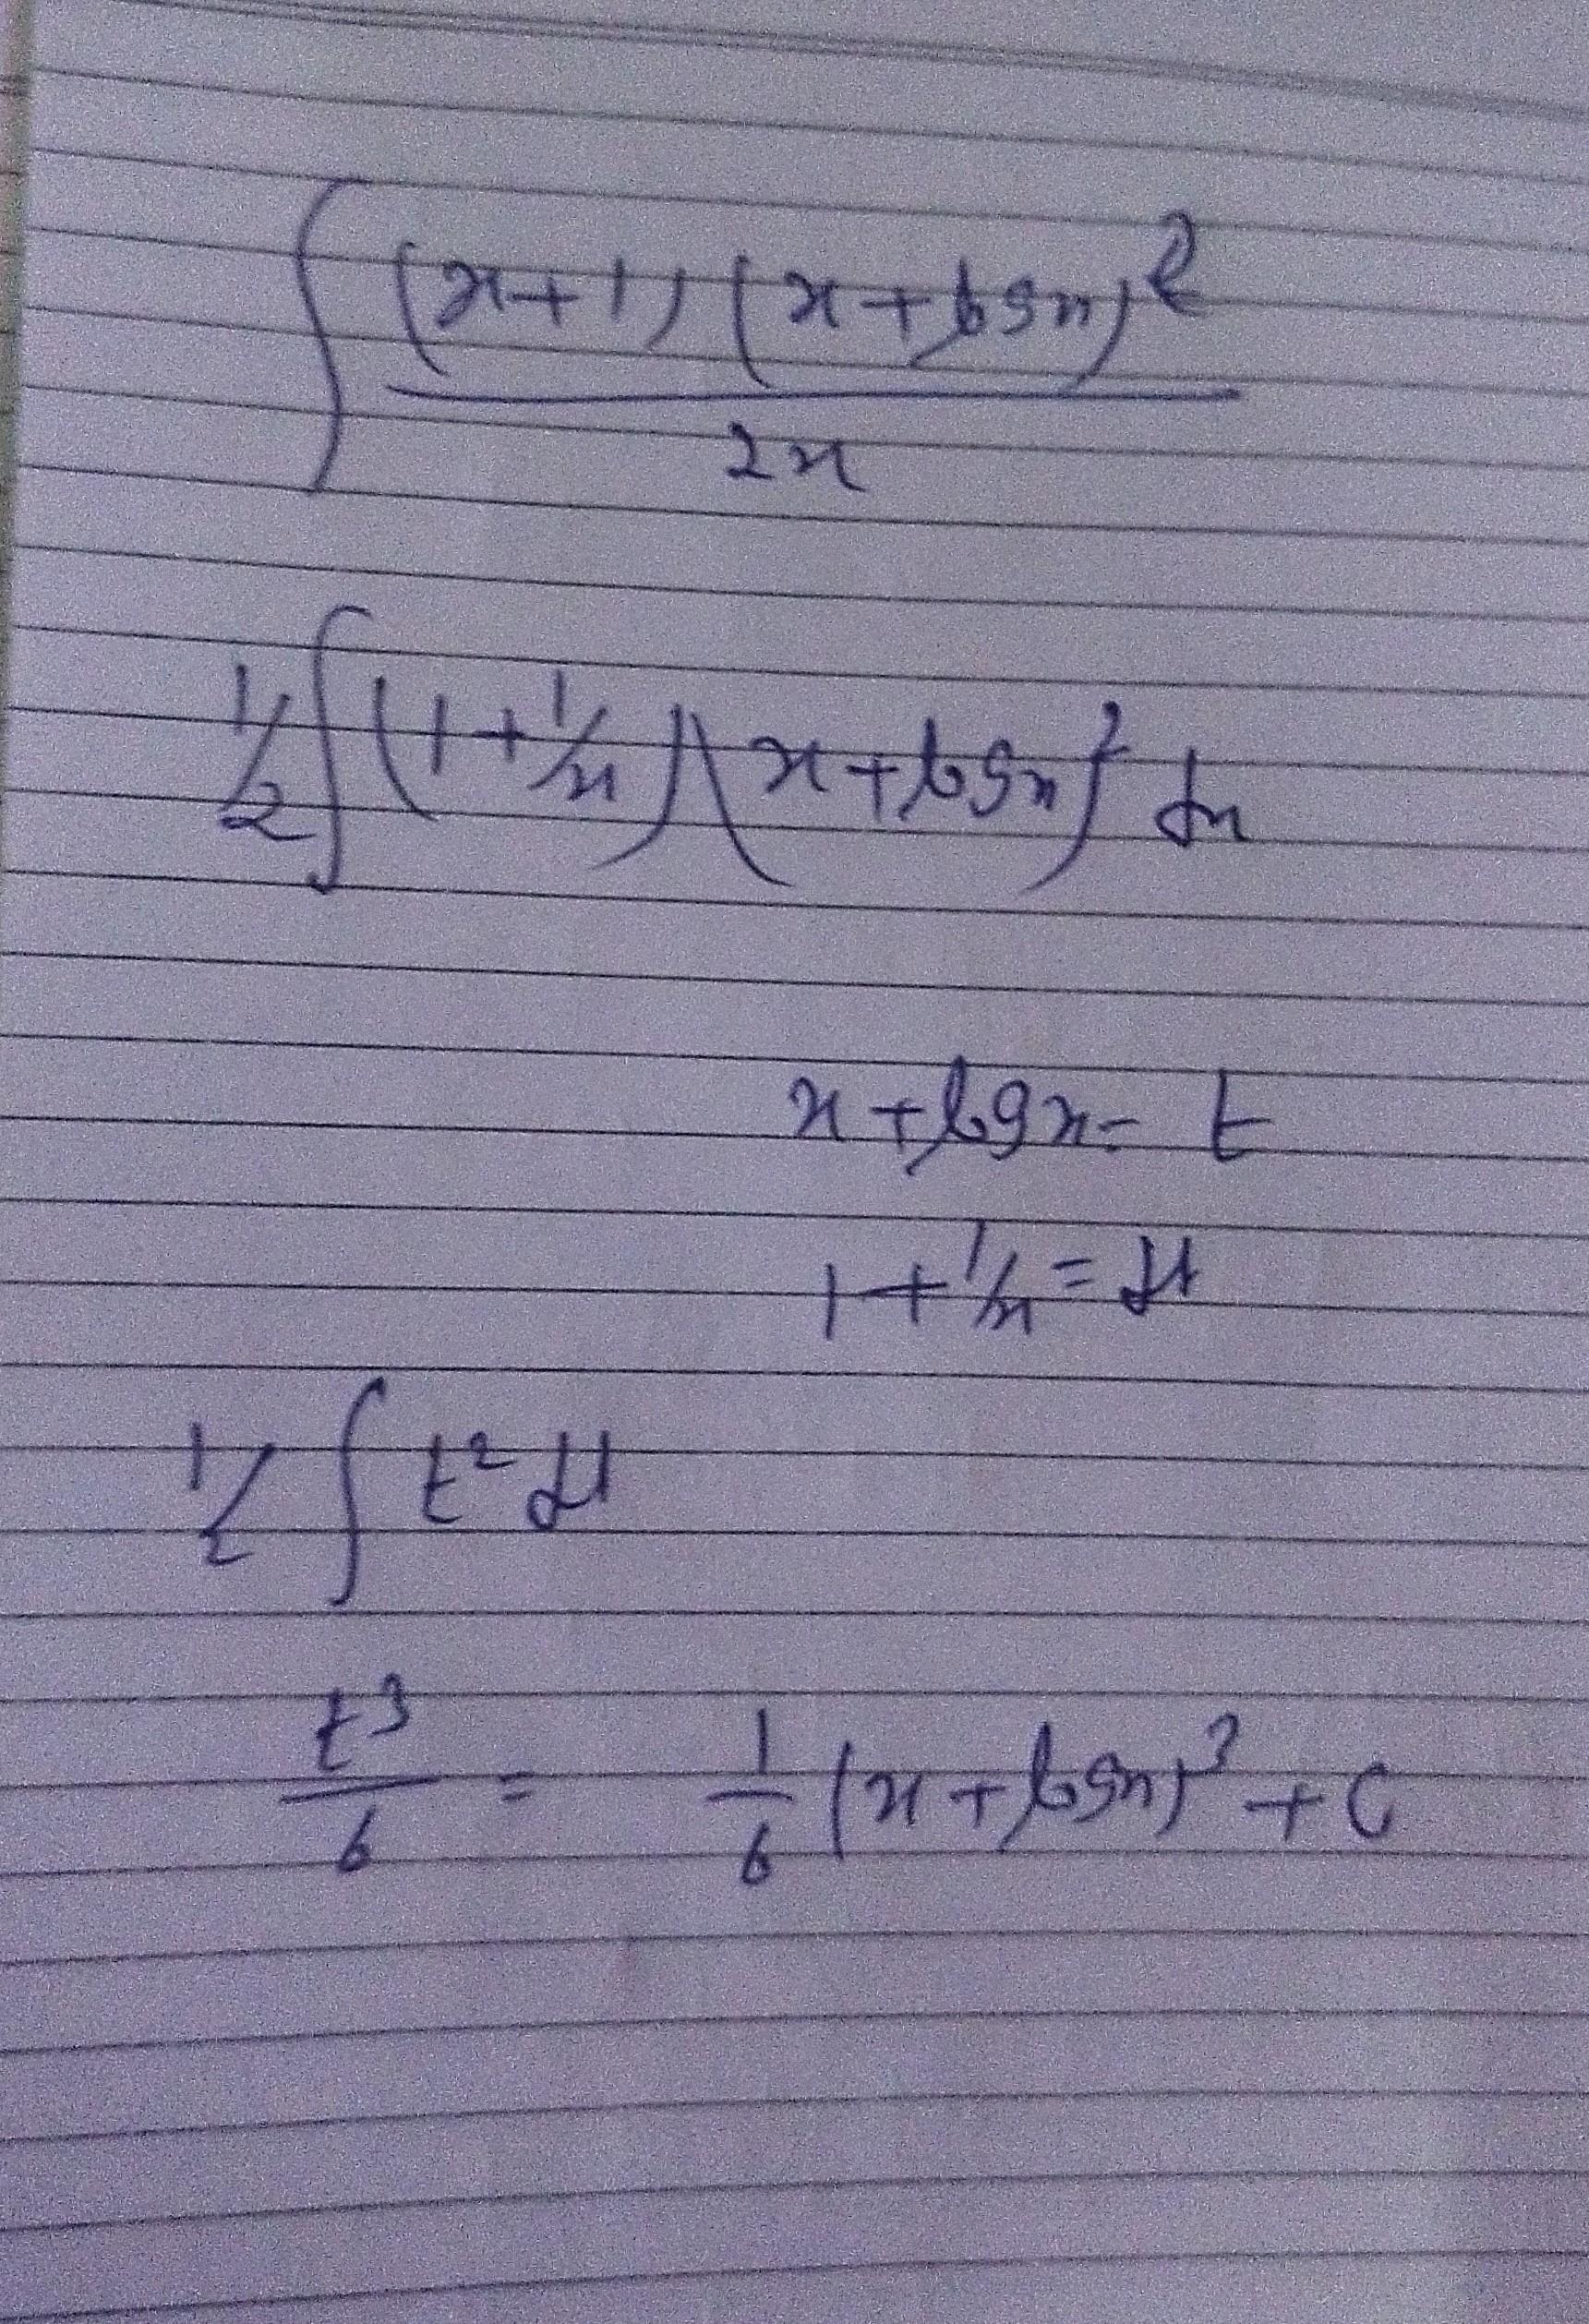 ∫ (x+1) (x+logx)² / 2x
1/2 ∫ (1+1/x) (x+logx)² dx
x+logx = t
1+1/x = dt
1/2 ∫ t² dt
t³/6 = 1/6 (x+logx)³ + c